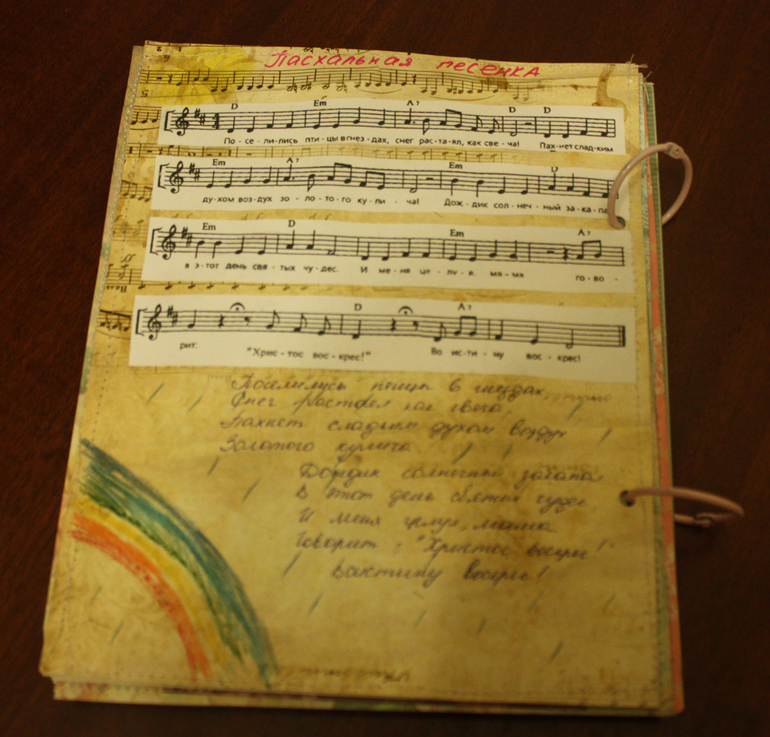 Пасхальная песенка
D Em A7 D D
По - се - ли - лись пти - цы в гнез - дах, снег рас - та - ял, как све - ча! Пах - нет слад - ким
Em A7 Em D
ду - хом воз - дух зо - ло - то - го ку - ли - ча! Дож - дик сол - неч - ный за - ка - па
Em D Em A7
в э - тот день свя - тых чу - дес. И ме - ня це - лу - я, ма - ма го - во -
D A7
рит: "Хрис - тос вос - крес!" Во ис - ти - ну вос - крес!
Поселились птицы в гнездах,
Снег растаял как свеча,
Пахнет сладким духом воздух
Золотого кулича
Дождик солнечный закапал
В этот день святых чудес,
И меня целуя, мама
Говорит: "Христос воскрес!"
Воистину воскрес!